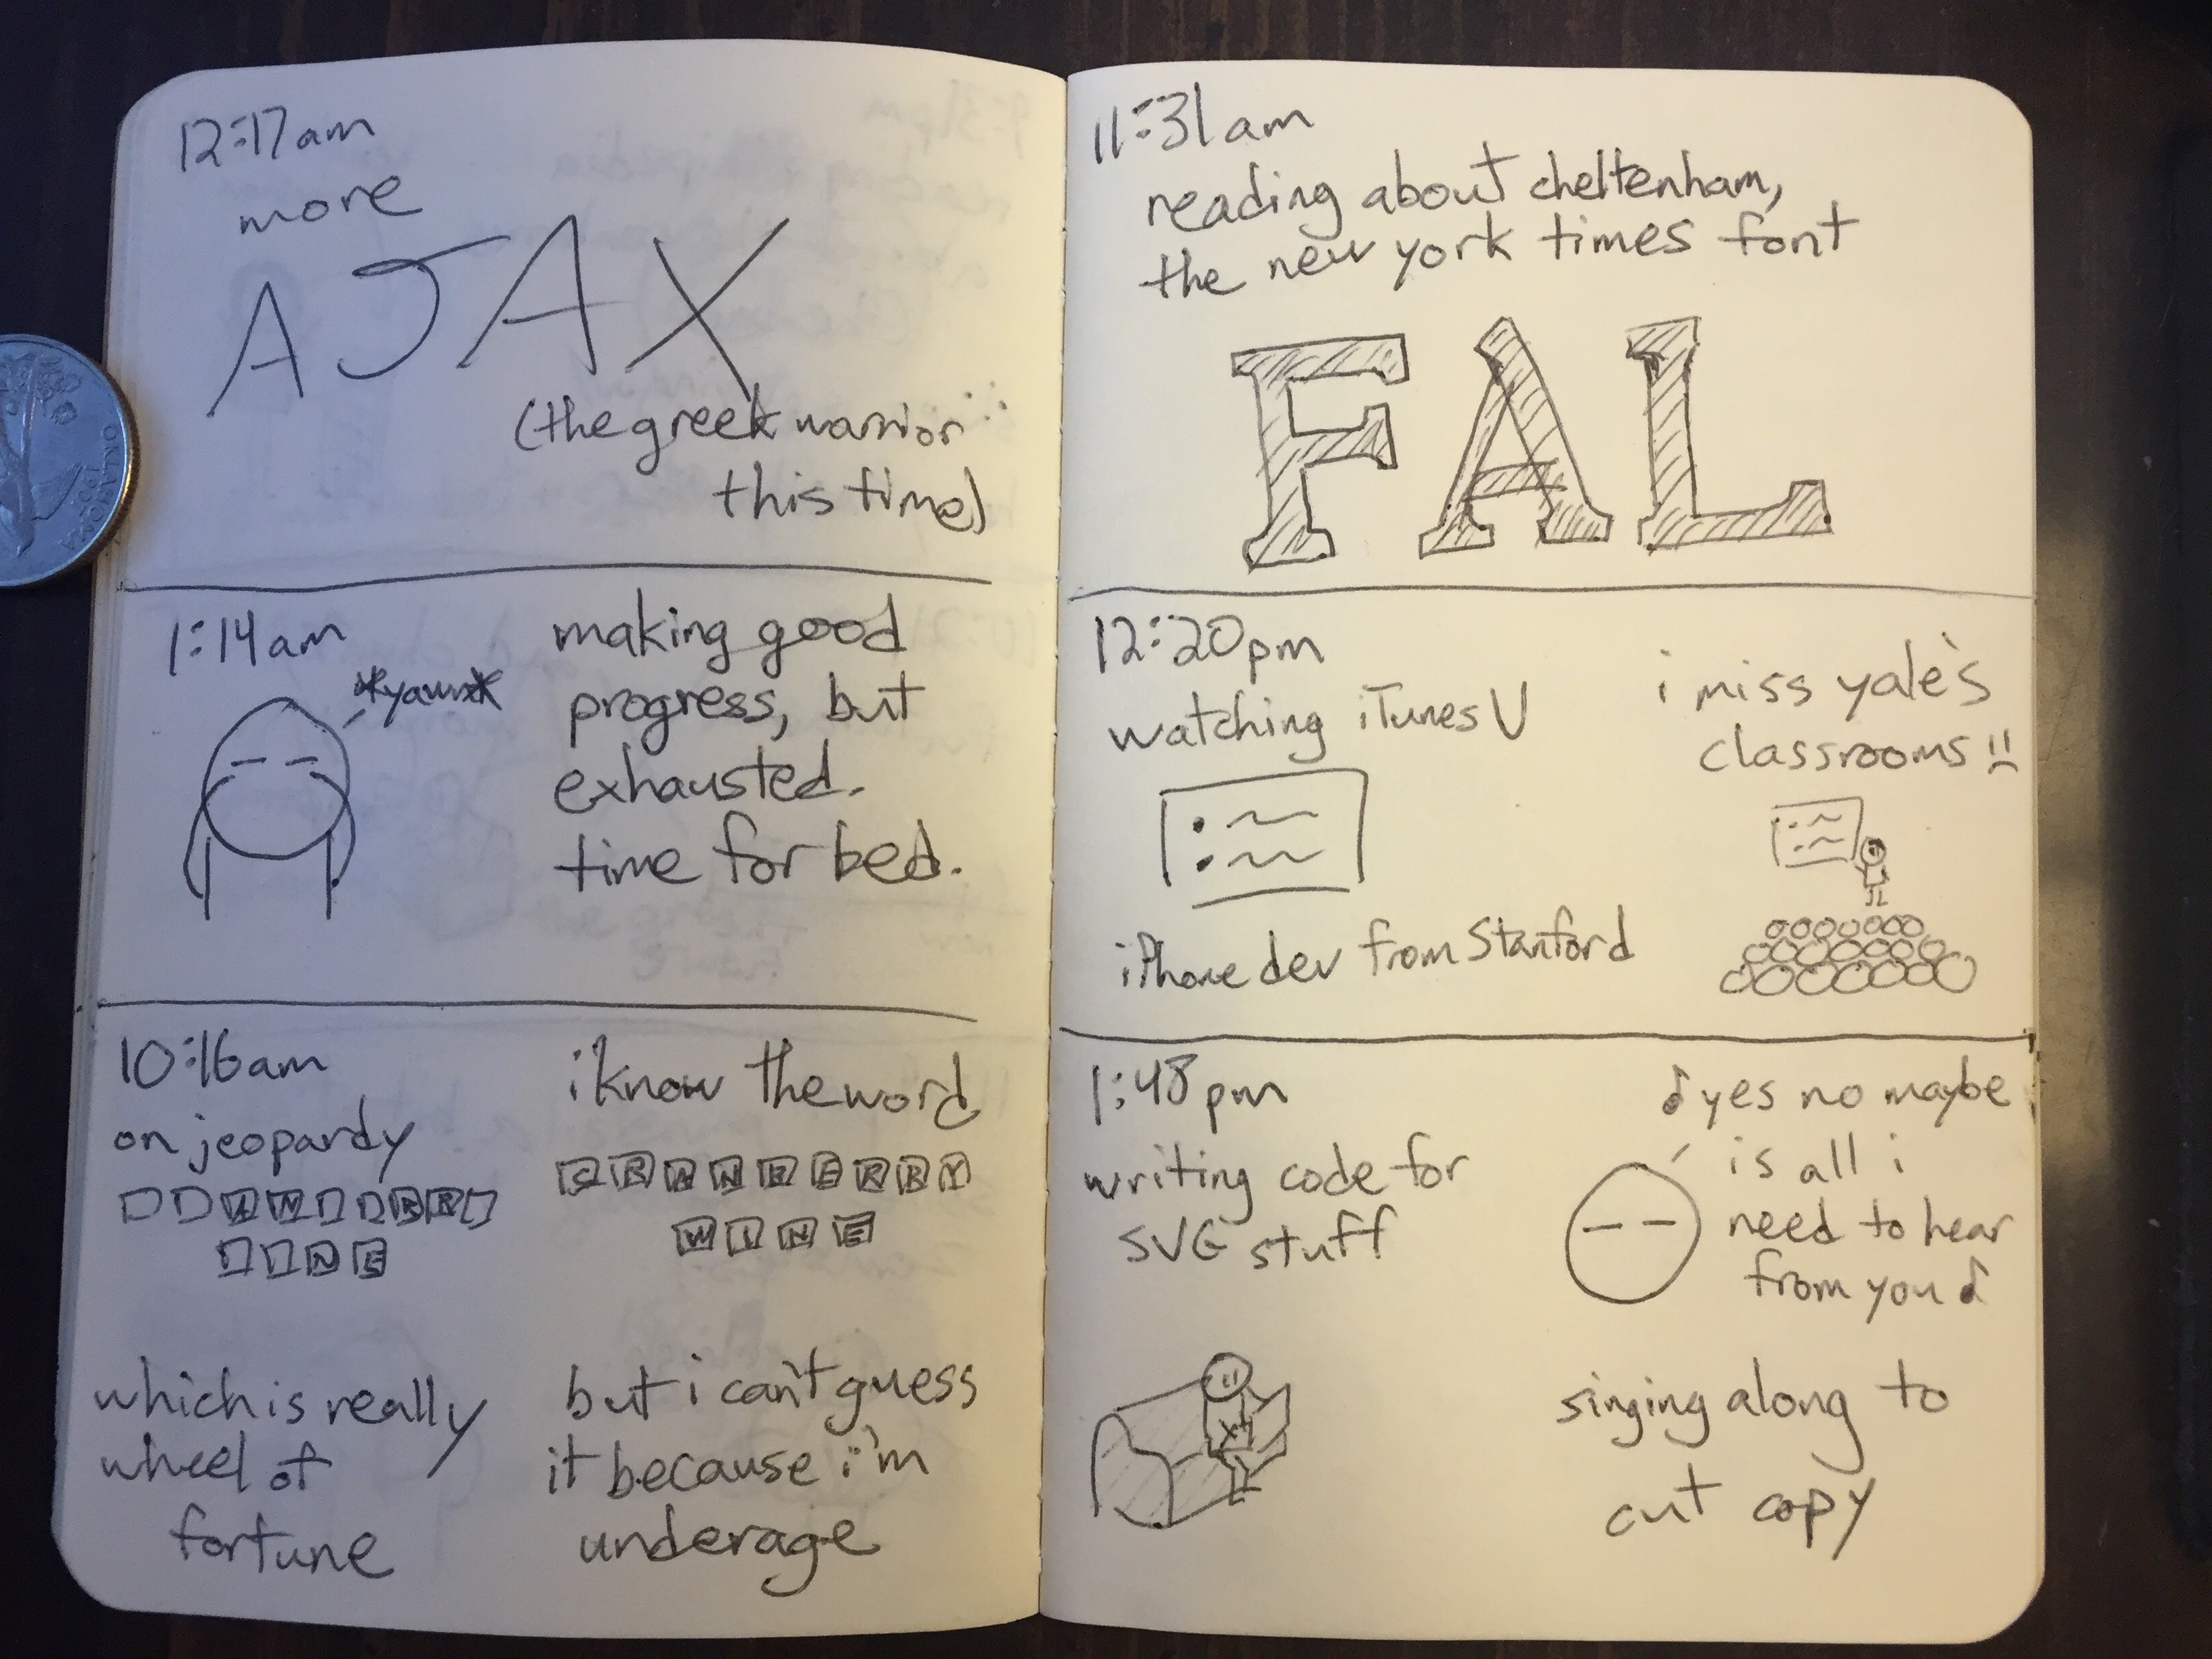 12:17am
more
AJAX
(the greek warrior
this time)
1:14am
*yawn*
making good
progress, but
exhausted.
time for bed.
10:16am
on jeopardy
A N R R
N E
which is really
wheel of
fortune
i know the word
CRANBERRY
WINE
but i can't guess
it because i'm
underage
11:31am
reading about cheltenham,
the new york times font
FAL
12:20pm
watching iTunes U
iPhone dev from Stanford
i miss yale's
classrooms !!
1:48pm
writing code for
SVG stuff
♪ yes no maybe
is all i
need to hear
from you ♪
singing along to
cut copy
OKLAHOMA
1907